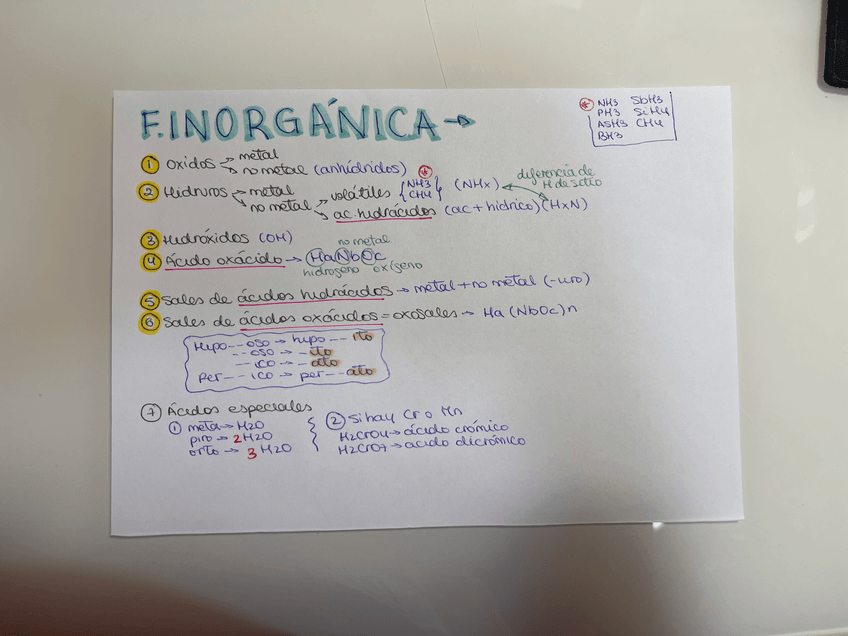 F.INORGÁNICA →
* NH3 SbH3
PH3 SiH4
ASH3 CH4
BH3
① Oxidos → metal
→ no metal (anhídridos)
② Hidruros → metal
→ no metal → volátiles { NH3 CH4 } * (NHx)
→ ac. hidrácidos (ac + hídrico) (HxN)
diferencia de
H de sitio
③ Hidróxidos (OH)
④ Ácido oxácido → HaNbOc
no metal
hidrogeno oxígeno
⑤ Sales de ácidos hidrácidos → metal + no metal (-uro)
⑥ Sales de ácidos oxácidos = oxosales → Ha (NbOc)n
Hipo -- oso → hipo -- ito
-- oso → -- ito
-- ico → -- ato
Per -- ico → per -- ato
⑦ Ácidos especiales
① meta → H2O
piro → 2 H2O
orto → 3 H2O
② Si hay Cr o Mn
H2CrO4 → ácido crómico
H2CrO7 → acido dicrómico